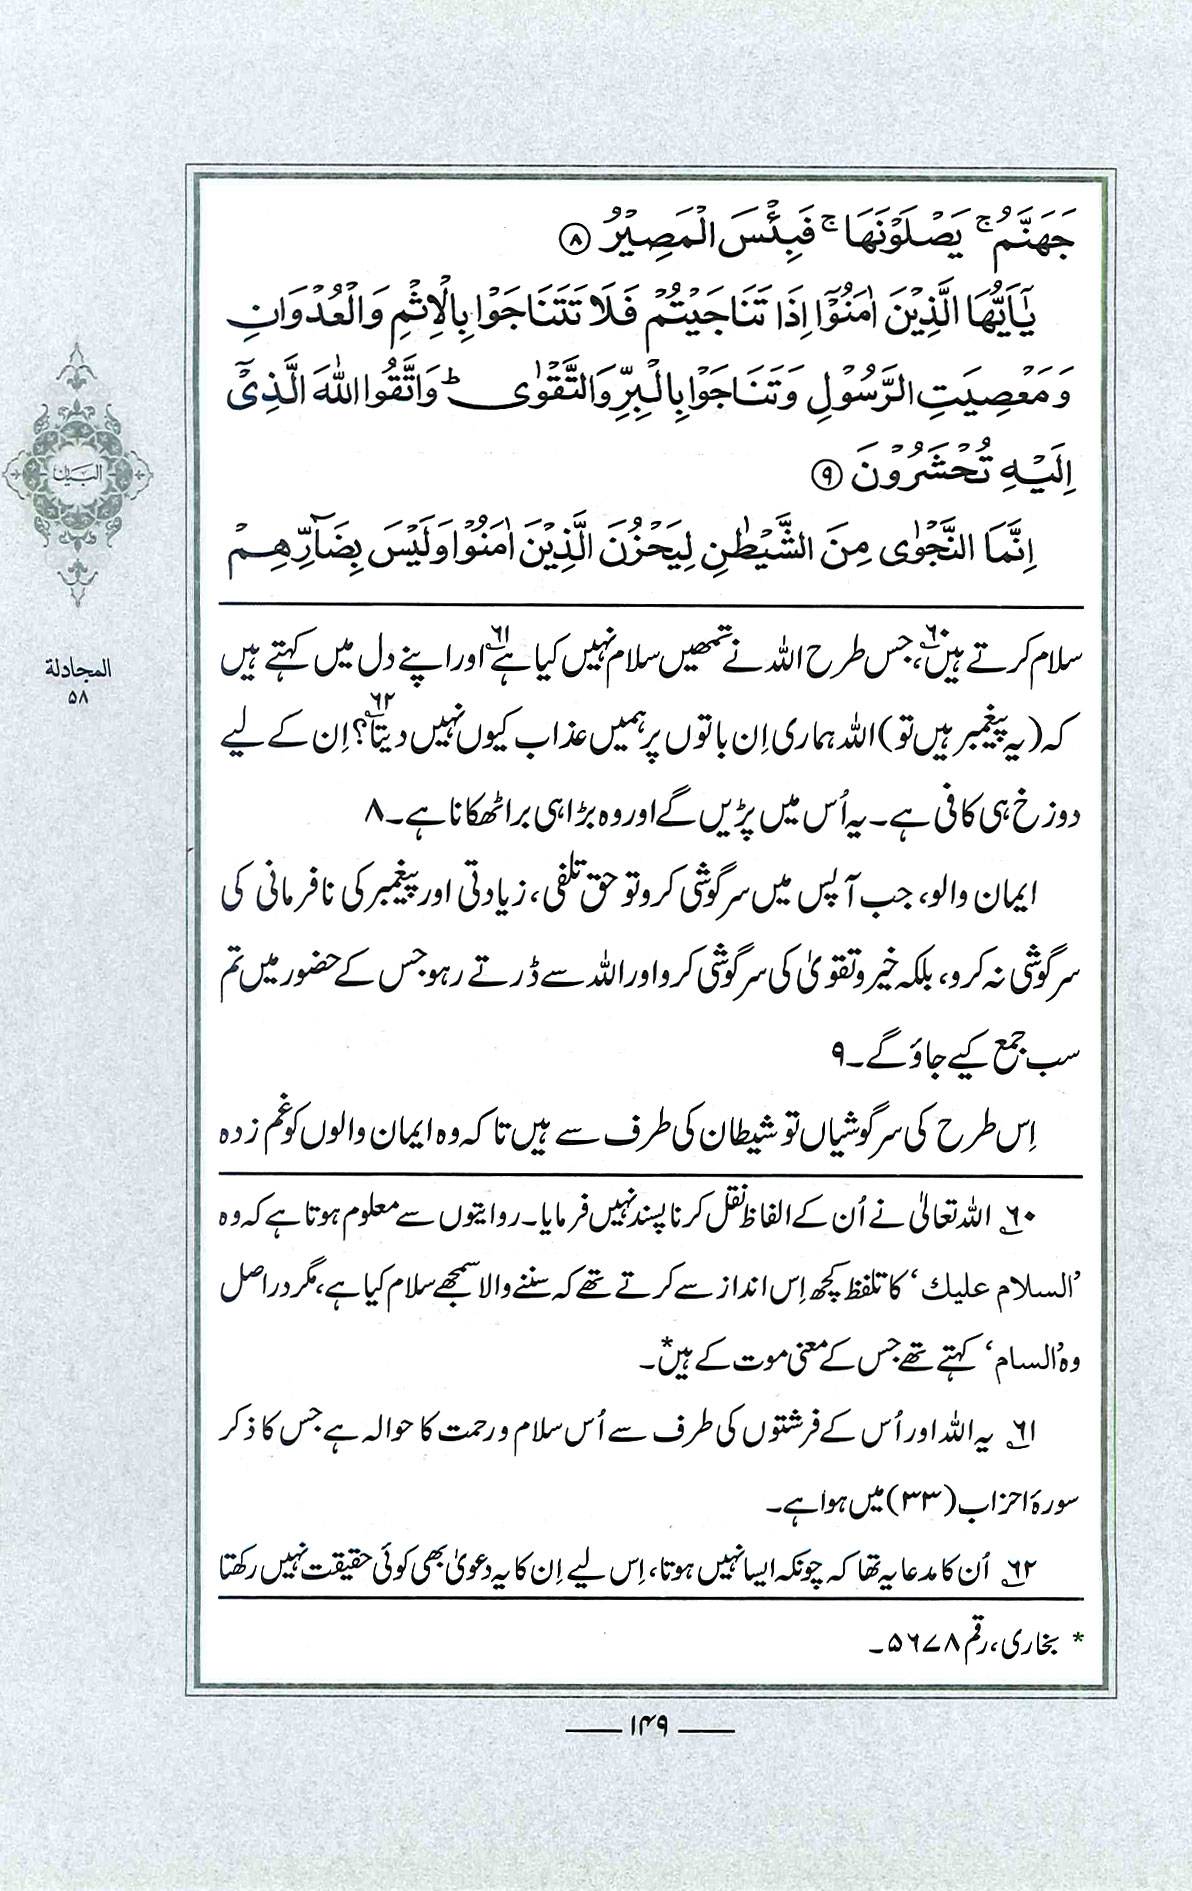 جَهَنَّمُ ۚ يَصْلَوْنَهَا ۚ فَبِئْسَ الْمَصِيْرُ ﴿۸﴾
يٰٓاَيُّهَا الَّذِيْنَ اٰمَنُوْٓا اِذَا تَنَاجَيْتُمْ فَلَا تَتَنَاجَوْا بِالْاِثْمِ وَالْعُدْوَانِ
وَمَعْصِيَتِ الرَّسُوْلِ وَتَنَاجَوْا بِالْبِرِّ وَالتَّقْوٰى ؕ وَاتَّقُوا اللّٰهَ الَّذِيْٓ
اِلَيْهِ تُحْشَرُوْنَ ﴿۹﴾
اِنَّمَا النَّجْوٰى مِنَ الشَّيْطٰنِ لِيَحْزُنَ الَّذِيْنَ اٰمَنُوْا وَلَيْسَ بِضَآرِّهِمْ
سلام کرتے ہیں۶۰، جس طرح اللہ نے تمھیں سلام نہیں کیا ہے۶۱ اور اپنے دل میں کہتے ہیں
کہ (یہ پیغمبر ہیں تو) اللہ ہماری اِن باتوں پر ہمیں عذاب کیوں نہیں دیتا۶۲؟ اِن کے لیے
دوزخ ہی کافی ہے۔ یہ اُس میں پڑیں گے اور وہ بڑا ہی برا ٹھکانا ہے۔ ۸
ایمان والو، جب آپس میں سرگوشی کرو تو حق تلفی، زیادتی اور پیغمبر کی نافرمانی کی
سرگوشی نہ کرو، بلکہ خیر و تقویٰ کی سرگوشی کرو اور اللہ سے ڈرتے رہو جس کے حضور میں تم
سب جمع کیے جاؤ گے۔ ۹
اِس طرح کی سرگوشیاں تو شیطان کی طرف سے ہیں تاکہ وہ ایمان والوں کو غم زدہ
۶۰ اللہ تعالیٰ نے اُن کے الفاظ نقل کرنا پسند نہیں فرمایا۔ روایتوں سے معلوم ہوتا ہے کہ وہ
'السلام عليك' کا تلفظ کچھ اِس انداز سے کرتے تھے کہ سننے والا سمجھے سلام کیا ہے، مگر دراصل
وہ 'السام' کہتے تھے جس کے معنی موت کے ہیں*۔
۶۱ یہ اللہ اور اُس کے فرشتوں کی طرف سے اُس سلام و رحمت کا حوالہ ہے جس کا ذکر
سورۂ احزاب (۳۳) میں ہوا ہے۔
۶۲ اُن کا مدعا یہ تھا کہ چونکہ ایسا نہیں ہوتا، اِس لیے اِن کا یہ دعویٰ بھی کوئی حقیقت نہیں رکھتا
* بخاری، رقم ۵۶۷۸۔
۱۴۹
البیان
المجادلة
۵۸